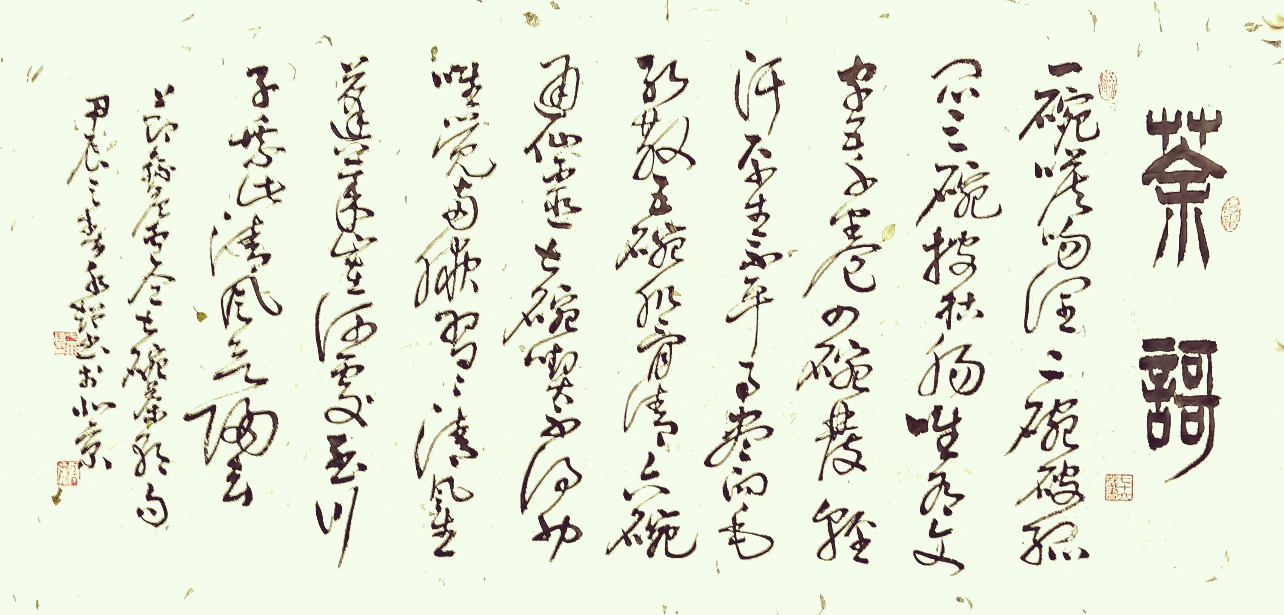 茶謌
一碗喉吻潤二碗破孤
悶三碗搜枯腸唯有文
字五千卷四碗發輕
汗平生不平事盡向毛
孔散五碗肌骨清六碗
通仙靈七碗喫不得也
唯覺兩腋習〻清風生
蓬萊山在何處玉川
子乘此清風欲歸去
節錄唐盧仝七碗茶歌句
甲辰之春永書於北京